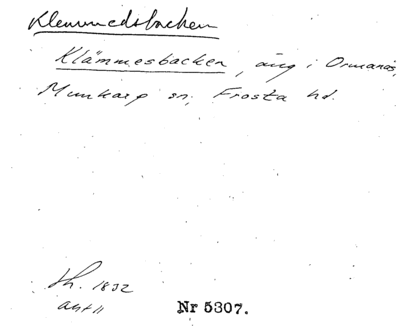 Klemmedsbacken
Klämmesbacken, äng i Ormanäs,
Munkarp sn, Frosta hd.
1832
Nr 5307.